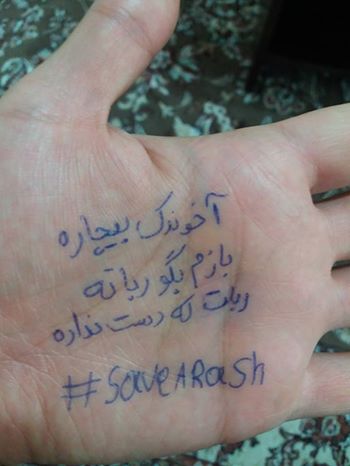 آخوندک بیچاره
بازم بگو رباته
ربات که دست نداره
#SaveARaSh